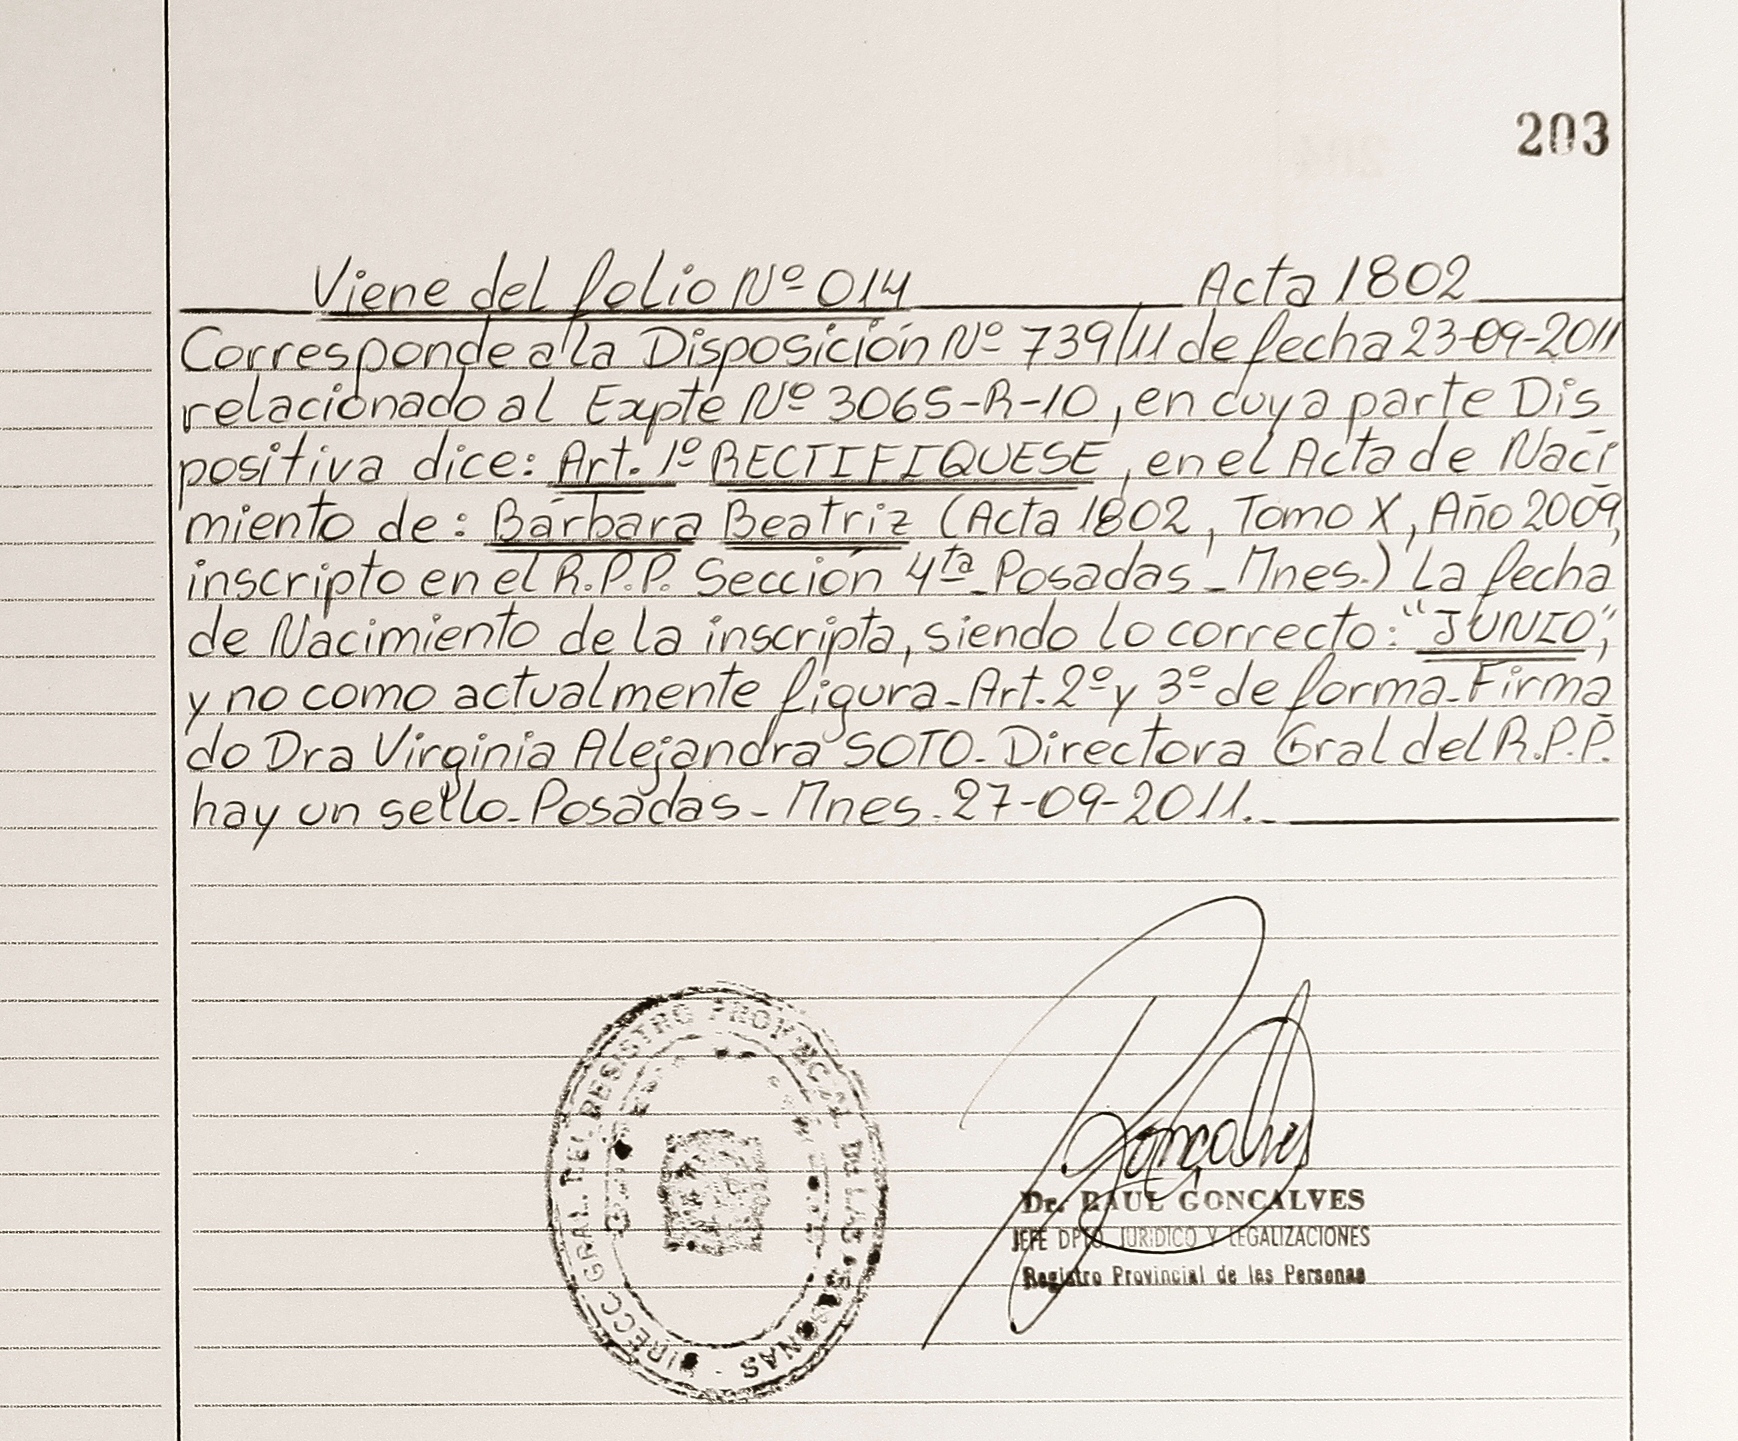 203
Viene del folio Nº 014 Acta 1802
Corresponde a la Disposición Nº 739/11 de fecha 23-09-2011
relacionado al Expte Nº 3065-R-10, en cuya parte Dis
positiva dice: Art. 1º RECTIFIQUESE, en el Acta de Naci
miento de: Bárbara Beatriz (Acta 1802, Tomo X, Año 2009,
inscripto en el R.P.P. Sección 4ta_Posadas_Mnes.) La fecha
de Nacimiento de la inscripta, siendo lo correcto: "JUNIO",
y no como actualmente figura_Art. 2º y 3º de forma_Firma
do Dra Virginia Alejandra SOTO_Directora Gral del R.P.P.
hay un sello_Posadas_Mnes. 27-09-2011._
DIRECC GRAL. DEL REGISTRO PROVINCIAL DE LAS PERSONAS
Goncalves
Dr. RAUL GONCALVES
JEFE DPTO. JURIDICO Y LEGALIZACIONES
Registro Provincial de las Personas